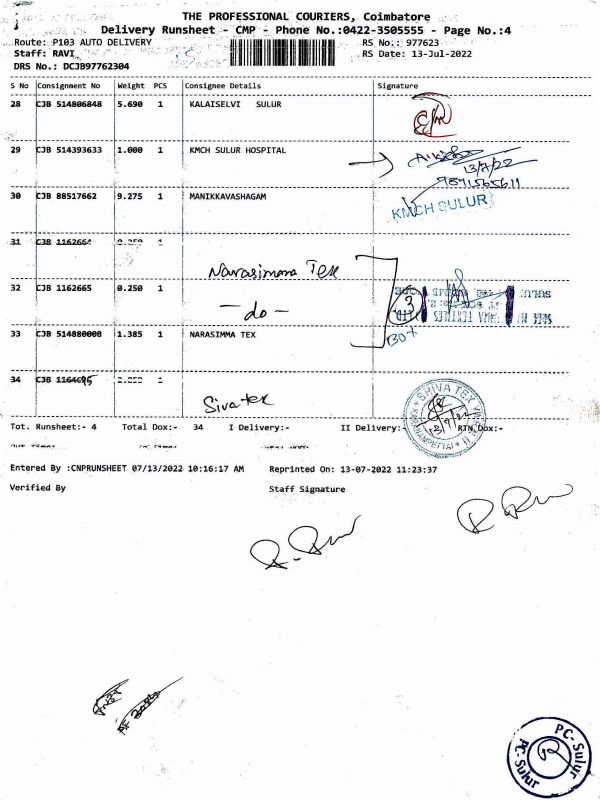 THE PROFESSIONAL COURIERS, Coimbatore
Delivery Runsheet - CMP - Phone No.:0422-3505555 - Page No.:4
Route: P103 AUTO DELIVERY RS No.: 977623
Staff: RAVI RS Date: 13-Jul-2022
DRS No.: DCJB97762304
S No Consignment No Weight PCS Consignee Details Signature
28 CJB 514806848 5.690 1 KALAISELVI SULUR
29 CJB 514393633 1.000 1 KMCH SULUR HOSPITAL
13/7/22
KMCH SULUR
30 CJB 88517662 9.275 1 MANIKKAVASHAGAM
31 CJB 1162664
Narasimma Tex
32 CJB 1162665 0.250 1 -do- 3
33 CJB 514880008 1.385 1 NARASIMMA TEX
34 CJB
Siva tex
SRIVA TEX
Tot. Runsheet:- 4 Total Dox:- 34 I Delivery:- II Delivery:- RTN Dox:-
Entered By :CNPRUNSHEET 07/13/2022 10:16:17 AM Reprinted On: 13-07-2022 11:23:37
Verified By Staff Signature
PC-Sulur
PC-Sulur